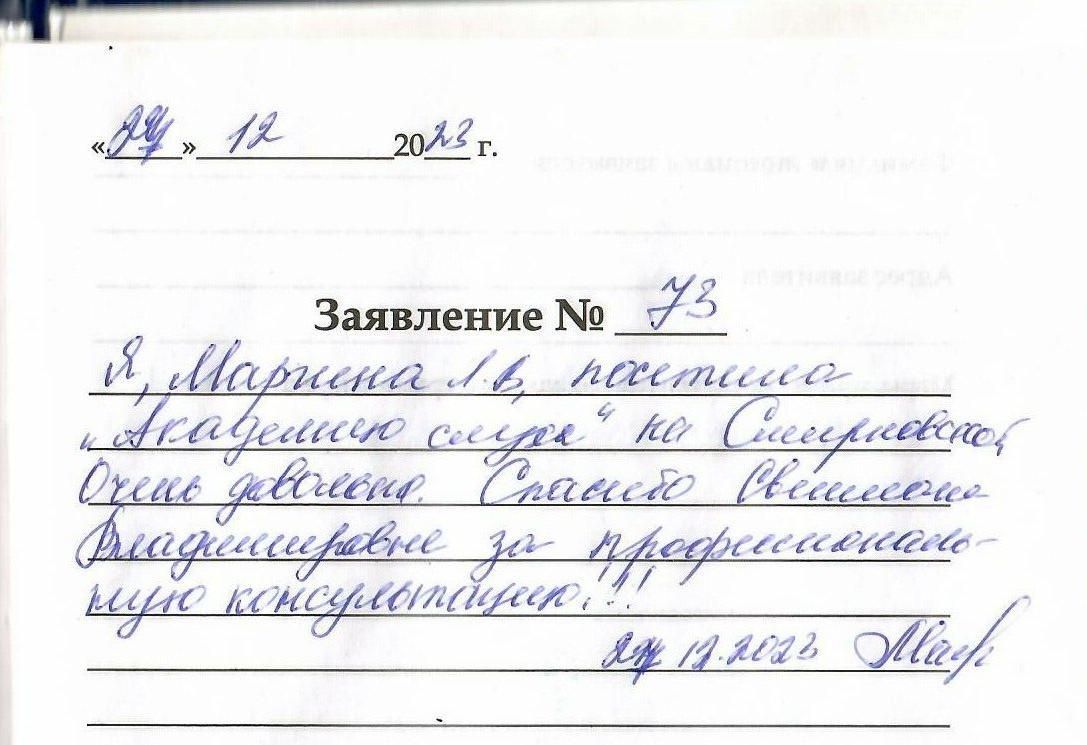 «27» 12 2023 г.
Заявление № 73
Я, Маркина Л В, посетила
„Академию слуха" на Смирновской
Очень довольна. Спасибо Светлана
Владимировне за профессиональ-
ную консультацию!!!
27 12.2023